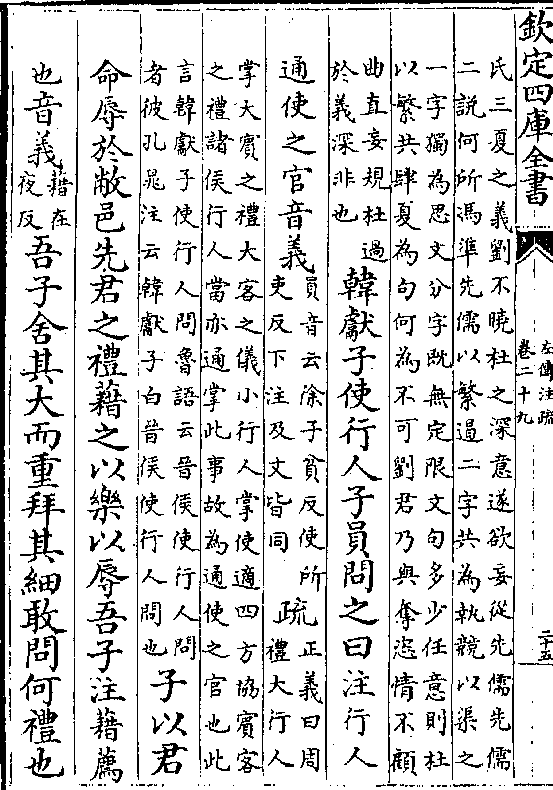 欽定四庫全書
左傳注疏
卷二十九
二十五
氏三夏之義劉不曉杜之深意遂欲妄從先儒先儒
二說何所馮準先儒以繁遏二字共為執競以渠之
一字獨為思文分字既無定限文句多少任意則杜
以繁共肆夏為句何為不可劉君乃與奪恣情不顧
曲直妄規杜過
於義深非也
韓獻子使行人子員問之曰注行人
通使之官音義
員音云徐子貧反使所
吏反下注及文皆同
疏
正義曰周
禮大行人
掌大賓之禮大客之儀小行人掌使適四方協賓客
之禮諸侯行人當亦通掌此事故為通使之官也此
言韓獻子使行人問魯語云晉侯使行人問
者彼孔晁注云韓獻子白晉侯使行人問也
子以君
命辱於敝邑先君之禮藉之以樂以辱吾子注藉薦
也音義
藉在
夜反
吾子舍其大而重拜其細敢問何禮也